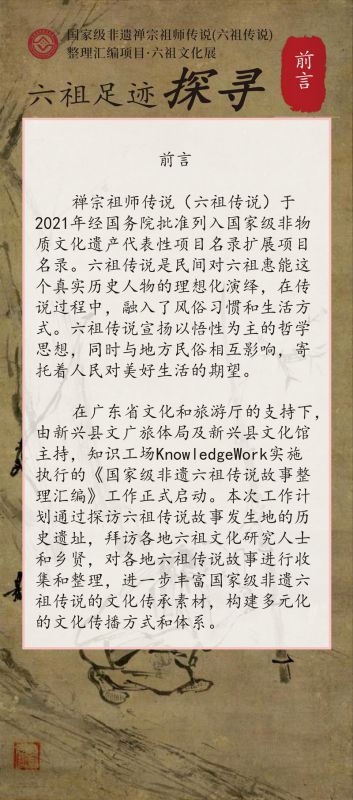 国家级非遗禅宗祖师传说(六祖传说)
整理汇编项目·六祖文化展
前言
六祖足迹探寻
前言
禅宗祖师传说（六祖传说）于
2021年经国务院批准列入国家级非物
质文化遗产代表性项目名录扩展项目
名录。六祖传说是民间对六祖惠能这
个真实历史人物的理想化演绎，在传
说过程中，融入了风俗习惯和生活方
式。六祖传说宣扬以悟性为主的哲学
思想，同时与地方民俗相互影响，寄
托着人民对美好生活的期望。
在广东省文化和旅游厅的支持下，
由新兴县文广旅体局及新兴县文化馆
主持，知识工场KnowledgeWork实施
执行的《国家级非遗六祖传说故事整
理汇编》工作正式启动。本次工作计
划通过探访六祖传说故事发生地的历
史遗址，拜访各地六祖文化研究人士
和乡贤，对各地六祖传说故事进行收
集和整理，进一步丰富国家级非遗六
祖传说的文化传承素材，构建多元化
的文化传播方式和体系。